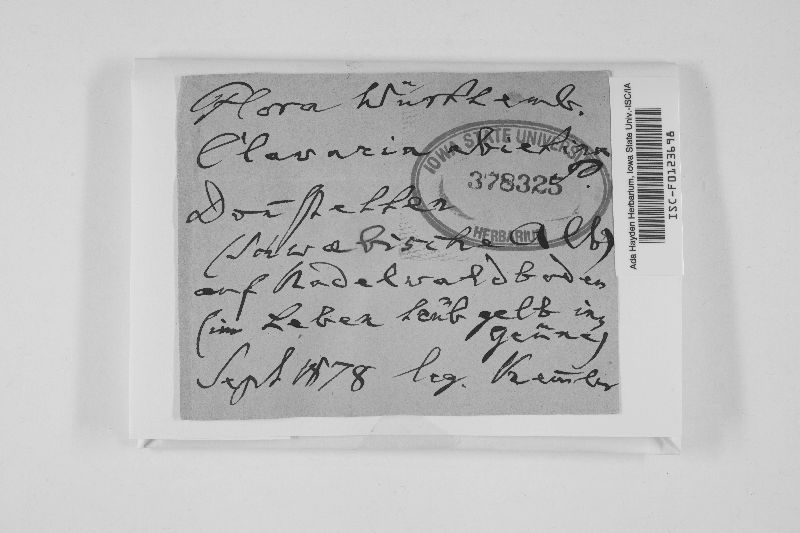 Flora Württemb.
Clavaria abietina P.
Donnstetten
(Schwäbische Alb)
auf Nadelwaldboden
(im Leben trüb gelb ins
grüne)
Sept 1878 leg. Kemmler
IOWA STATE UNIVERSITY
378325
HERBARIUM
Ada Hayden Herbarium, Iowa State Univ.-ISC/IA
ISC-F0123698